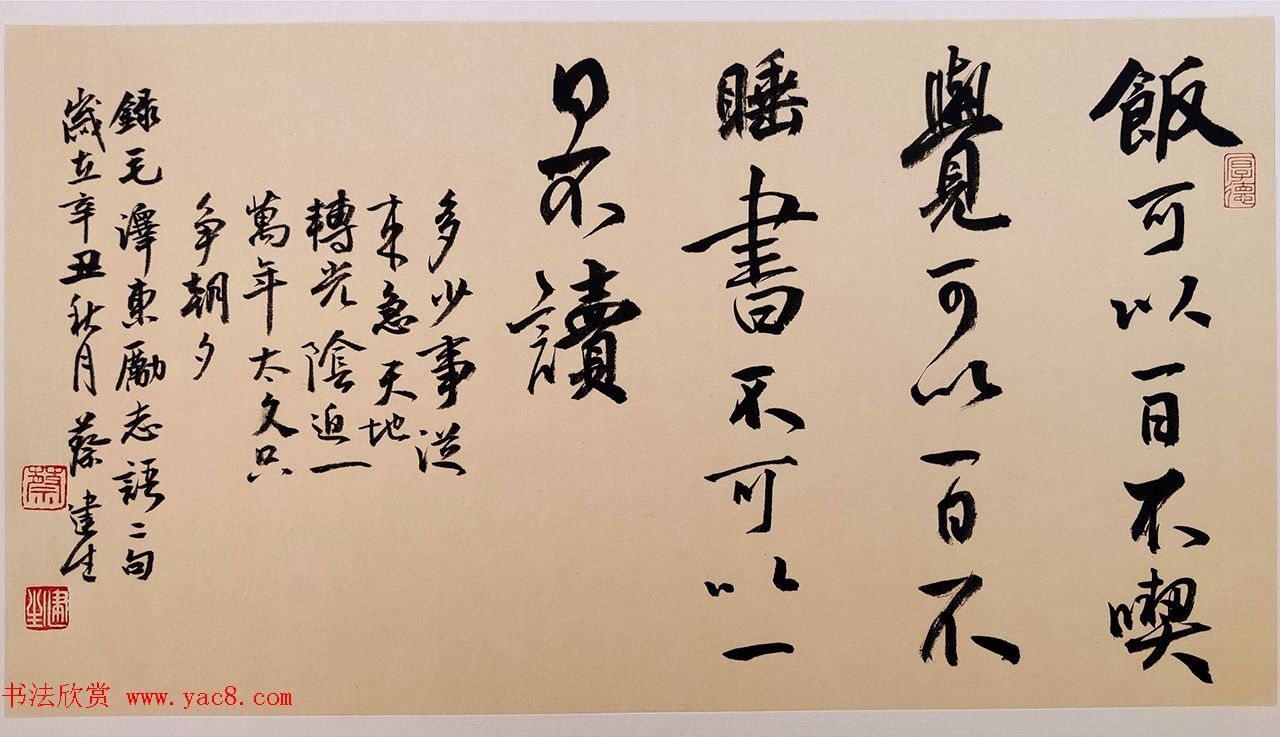 飯可以一日不喫
覺可以一日不
睡書不可以一
日不讀
多少事從
來急天地
轉光陰迫一
萬年太久只
争朝夕
録毛澤東勵志語二句
歲在辛丑秋月蔡建生
厚德
蔡
建生
书法欣赏 www.yac8.com